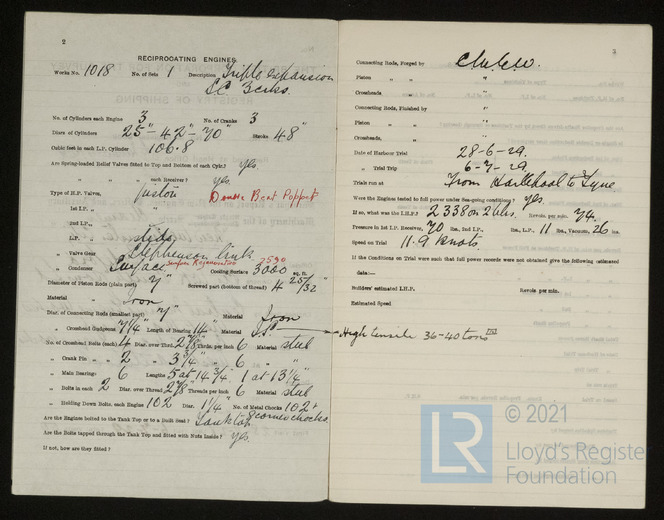 2
RECIPROCATING ENGINES.
Works No. 1018 No. of Sets 1 Description Triple expansion
SC 3 crks.
No. of Cylinders each Engine 3 No. of Cranks 3
Diars. of Cylinders 25"-42"-70" Stroke 48"
Cubic feet in each L.P. Cylinder 106.8
Are Spring-loaded Relief Valves fitted to Top and Bottom of each Cylr.? yes.
" " each Receiver? yes.
Type of H.P. Valves, piston Double Beat Poppet
1st I.P. "
2nd I.P. "
L.P. " slide
" Valve Gear Stephenson link
" Condenser Surface 2590 Cooling Surface 3000 sq. ft.
Diameter of Piston Rods (plain part) 7" Screwed part (bottom of thread) 4 25/32"
Material " Iron
Diar. of Connecting Rods (smallest part) 7" Material Iron
" Crosshead Gudgeons 7 1/4" Length of Bearing 14" Material
No. of Crosshead Bolts (each) 4 Diar. over Thrd. 2 7/8" Thrds. per inch 6 Material steel
" Crank Pin " 2 " 3 3/4" " 6 " "
" Main Bearings 6 Lengths 5 at 14 3/4". 1 at 13 1/4"
" Bolts in each 2 Diar. over Thread 2 7/8" Threads per inch 6 Material steel
" Holding Down Bolts, each Engine 102 Diar. 1 1/4" No. of Metal Chocks 102 +
8 corner chocks.
Are the Engines bolted to the Tank Top or to a Built Seat? Tank top
Are the Bolts tapped through the Tank Top and fitted with Nuts Inside? yes.
If not, how are they fitted?
3
Connecting Rods, Forged by
Piston " "
Crossheads "
Connecting Rods, Finished by
Piston " "
Crossheads, "
Date of Harbour Trial 28-6-29.
" Trial Trip 6-7-29
Trials run at From Hartlepool to Tyne
Were the Engines tested to full power under Sea-going conditions? yes.
If so, what was the I.H.P.? 2338 on 2 blrs. Revols. per min. 74.
Pressure in 1st I.P. Receiver, 70 lbs., 2nd I.P., lbs., L.P., 11 lbs., Vacuum, 26 ins.
Speed on Trial 11.9 knots.
If the Conditions on Trial were such that full power records were not obtained give the following estimated
data:—
Builders' estimated I.H.P. Revols. per min.
Estimated Speed
High tensile 36-40 tons
LR
© 2021
Lloyd's Register
Foundation